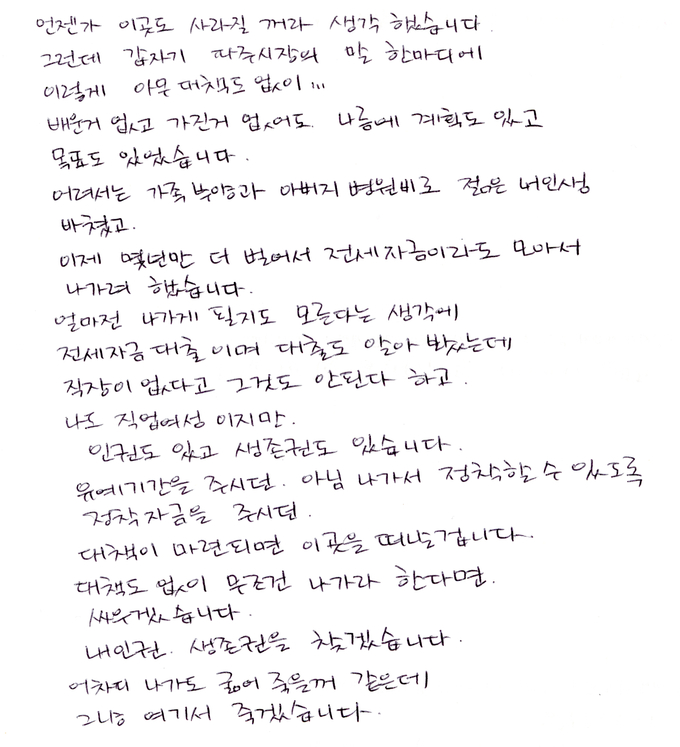 언젠가 이곳도 사라질 꺼라 생각 했습니다.
그런데 갑자기 파주시장의 말 한마디에
이렇게 아무 대책도 없이...
배운거 없고 가진거 없어도. 나름에 계획도 있고
목표도 있었습니다.
어려서는 가족 부양과 아버지 병원비로 젊은 내인생
바쳤고.
이제 몇년만 더 벌어서 전세자금이라도 모아서
나가려 했습니다.
얼마전 나가게 될지도 모른다는 생각에
전세자금 대출이며 대출도 알아 봤는데
직장이 없다고 그것도 안된다 하고.
나도 직업여성 이지만.
인권도 있고 생존권도 있습니다.
유예기간을 주시던. 아님 나가서 정착할 수 있도록
정착자금을 주시던.
대책이 마련되면 이곳을 떠날겁니다.
대책도 없이 무조건 나가라 한다면.
싸우겠습니다.
내인권. 생존권을 찾겠습니다.
어차피 나가도 굶어 죽을꺼 같은데
그냥 여기서 죽겠습니다.